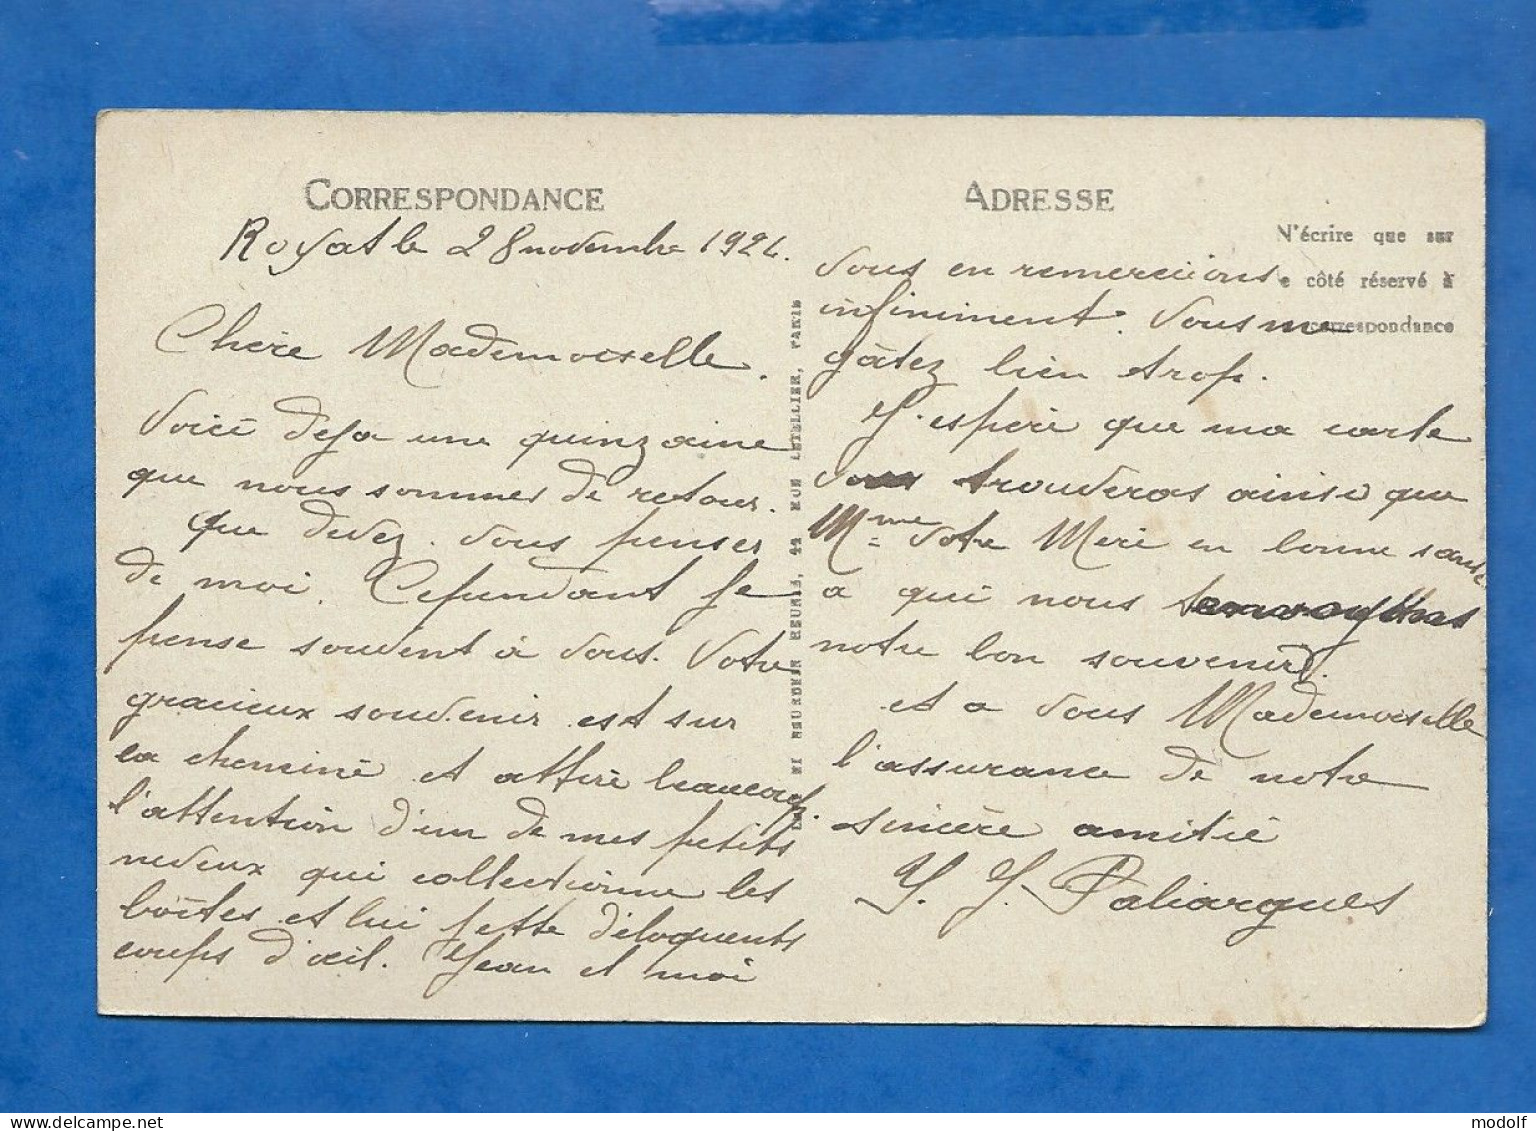 CORRESPONDANCE
Royat le 28 novembre 192
Chère Mademoiselle.
Voici deja une quinzaine
que nous sommes de retour.
Que devez. vous penser
de moi. Cependant je
pense souvent à vous. Votre
gracieux souvenir est sur
la cheminé et attire beaucoup
l'attention d'un de mes petits
neveux qui collectionne les
boîtes et lui jette d'éloquents
coups d'œil. Jean et moi
ND. NEURDEIN REUNIS, 44 RUE LETELLIER, PARIS
ADRESSE
N'écrire que sur
e côté réservé à
correspondance
vous en remercions
infiniment. Vous me
gâtez bien trop.
J'espère que ma carte
vous trouveras ainsi que
Mme votre Mère en bonne santé
a qui nous envoyons
notre bon souvenir.
et a vous Mademoiselle
l'assurance de notre
sincère amitié
Y. J. Paliargues
modolf